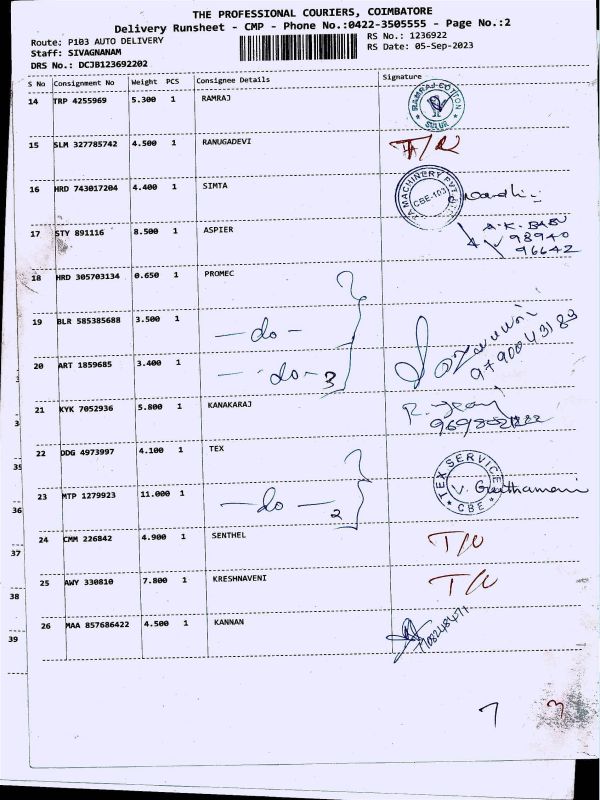 THE PROFESSIONAL COURIERS, COIMBATORE
Delivery Runsheet - CMP - Phone No.:0422-3505555 - Page No.:2
Route: P103 AUTO DELIVERY
RS No.: 1236922
Staff: SIVAGNANAM
RS Date: 05-Sep-2023
DRS No.: DCJB123692202
S No Consignment No Weight PCS Consignee Details Signature
14 TRP 4255969 5.300 1 RAMRAJ
RAMRAJ COTTON
SULUR
15 SLM 327785742 4.500 1 RANUGADEVI
16 HRD 743017204 4.400 1 SIMTA
MACHINERY PVT
CBE-103
17 STY 891116 8.500 1 ASPIER
A.K. BABU
98940
96642
18 HRD 305703134 0.650 1 PROMEC
19 BLR 585385688 3.500 1
-do-
20 ART 1859685 3.400 1
-do- 3
21 KYK 7052936 5.800 1 KANAKARAJ
22 DDG 4973997 4.100 1 TEX
TEX SERVICE
CBE
V. Gowthamani
23 MTP 1279923 11.000 1
-do- 2
36
24 CMM 226842 4.900 1 SENTHEL
37
25 AWY 330810 7.800 1 KRESHNAVENI
38
26 MAA 857686422 4.500 1 KANNAN
39
7